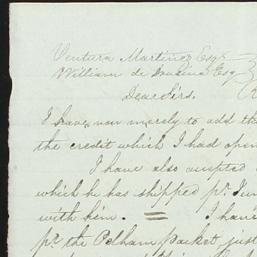 Ventura Martinez Esqr
William de
Dear Sirs.
I have now merely to add th
the credit which I had open
I have also accepted
which he has shipped pr.
with him. = I have
pr. the Pelham Packet, just